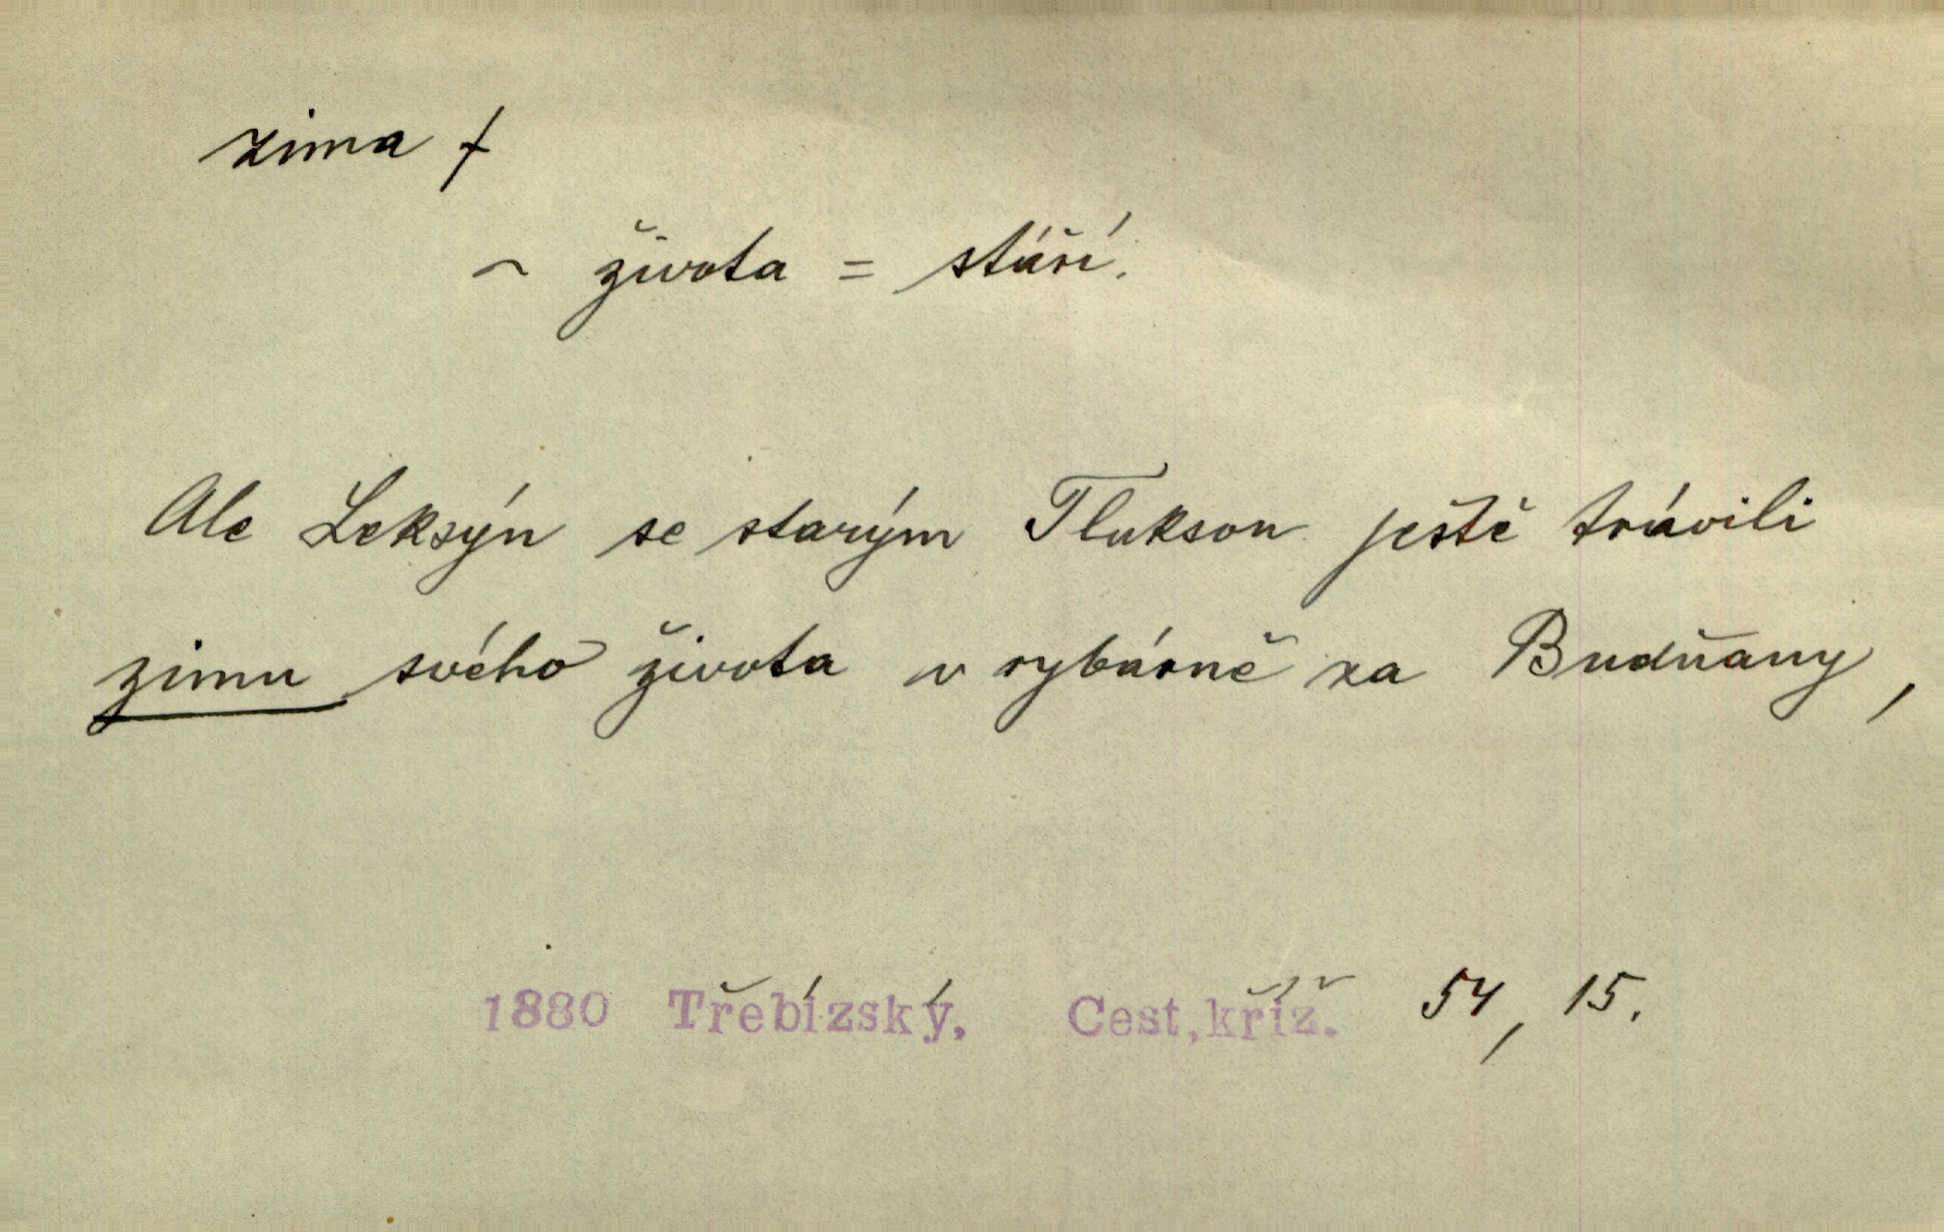 zima f
~ života = stáří.
Ale Leksýn se starým Tlukson ještě trávili
zimu svého života v rybárně za Budňany,
1880 Třebízský. Cest.kříž. 54, 15.